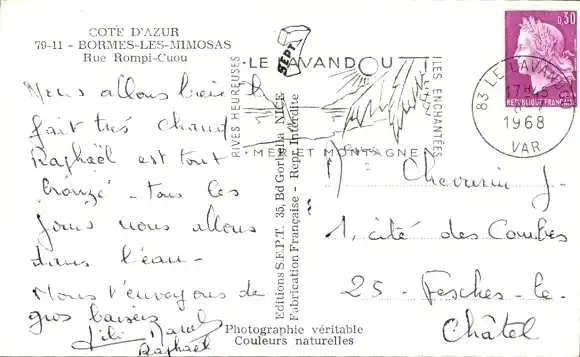 COTE D'AZUR
79-11 - BORMES-LES-MIMOSAS
Rue Rompi-Cuou
Nous allons bien il
fait très chaud
Raphaël est tout
bronzé - tous les
jours nous allons
dans l'eau -
Nous t'envoyons de
gros baisers
Lili Marcel
Raphaël
Photographie véritable
Couleurs naturelles
Editions S.E.P.T. 35, Bd Gorbella NICE
Fabrication Française - Repr. Interdite
SEPT
RIVES HEUREUSES
LE LAVANDOU
ILES ENCHANTÉES
MER ET MONTAGNE
0,30
REPUBLIQUE FRANÇAISE
83 LE LAVANDOU
17H
1968
VAR
Chevarin J.
1, cité des Combes
25 - Fesches-le-
Châtel